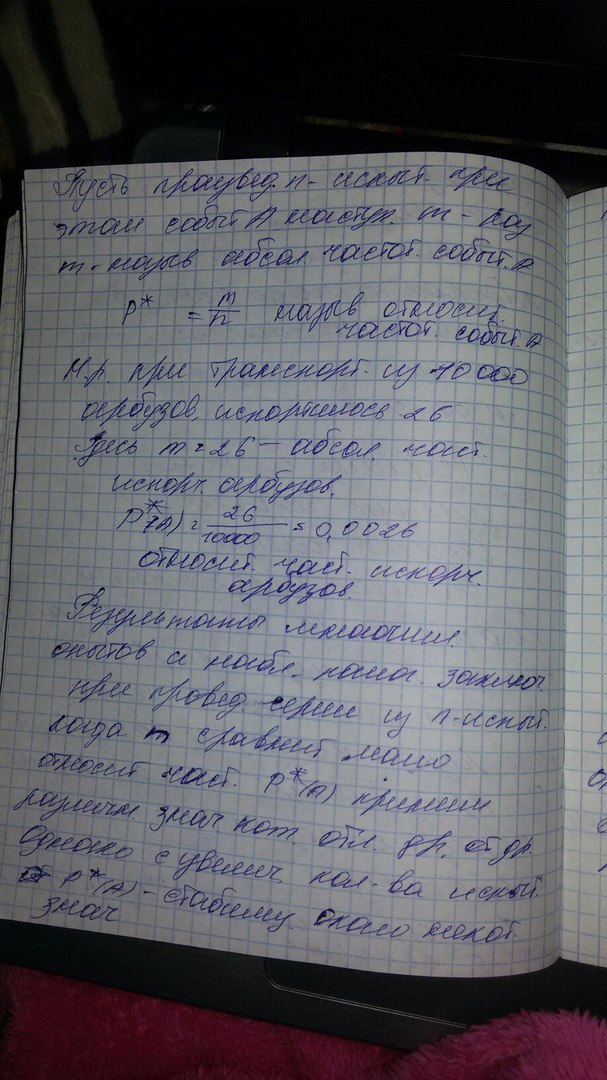 Пусть произвед. n - испыт. при
этом событ A наступ. m - раз
m - назыв абсол. частот. событ. A
P* = m/n назыв относит.
частот. событ. A
Н.р. при транспорт. из 10000
арбузов, испортилось 26
Здесь m = 26 - абсол. част.
испорч. арбузов.
P*(A) = 26/10000 = 0,0026
относит. част. испорч.
арбузов.
Результаты многочисл.
опытов и набл. заключ.
при провед. серии из n-испыт.
когда n сравнит мало
относит част. P*(A) приним
различн знач кот. отл. др. от др.
Однако с увелич. кол-ва испыт.
P*(A) - стабилиз около некот.
знач